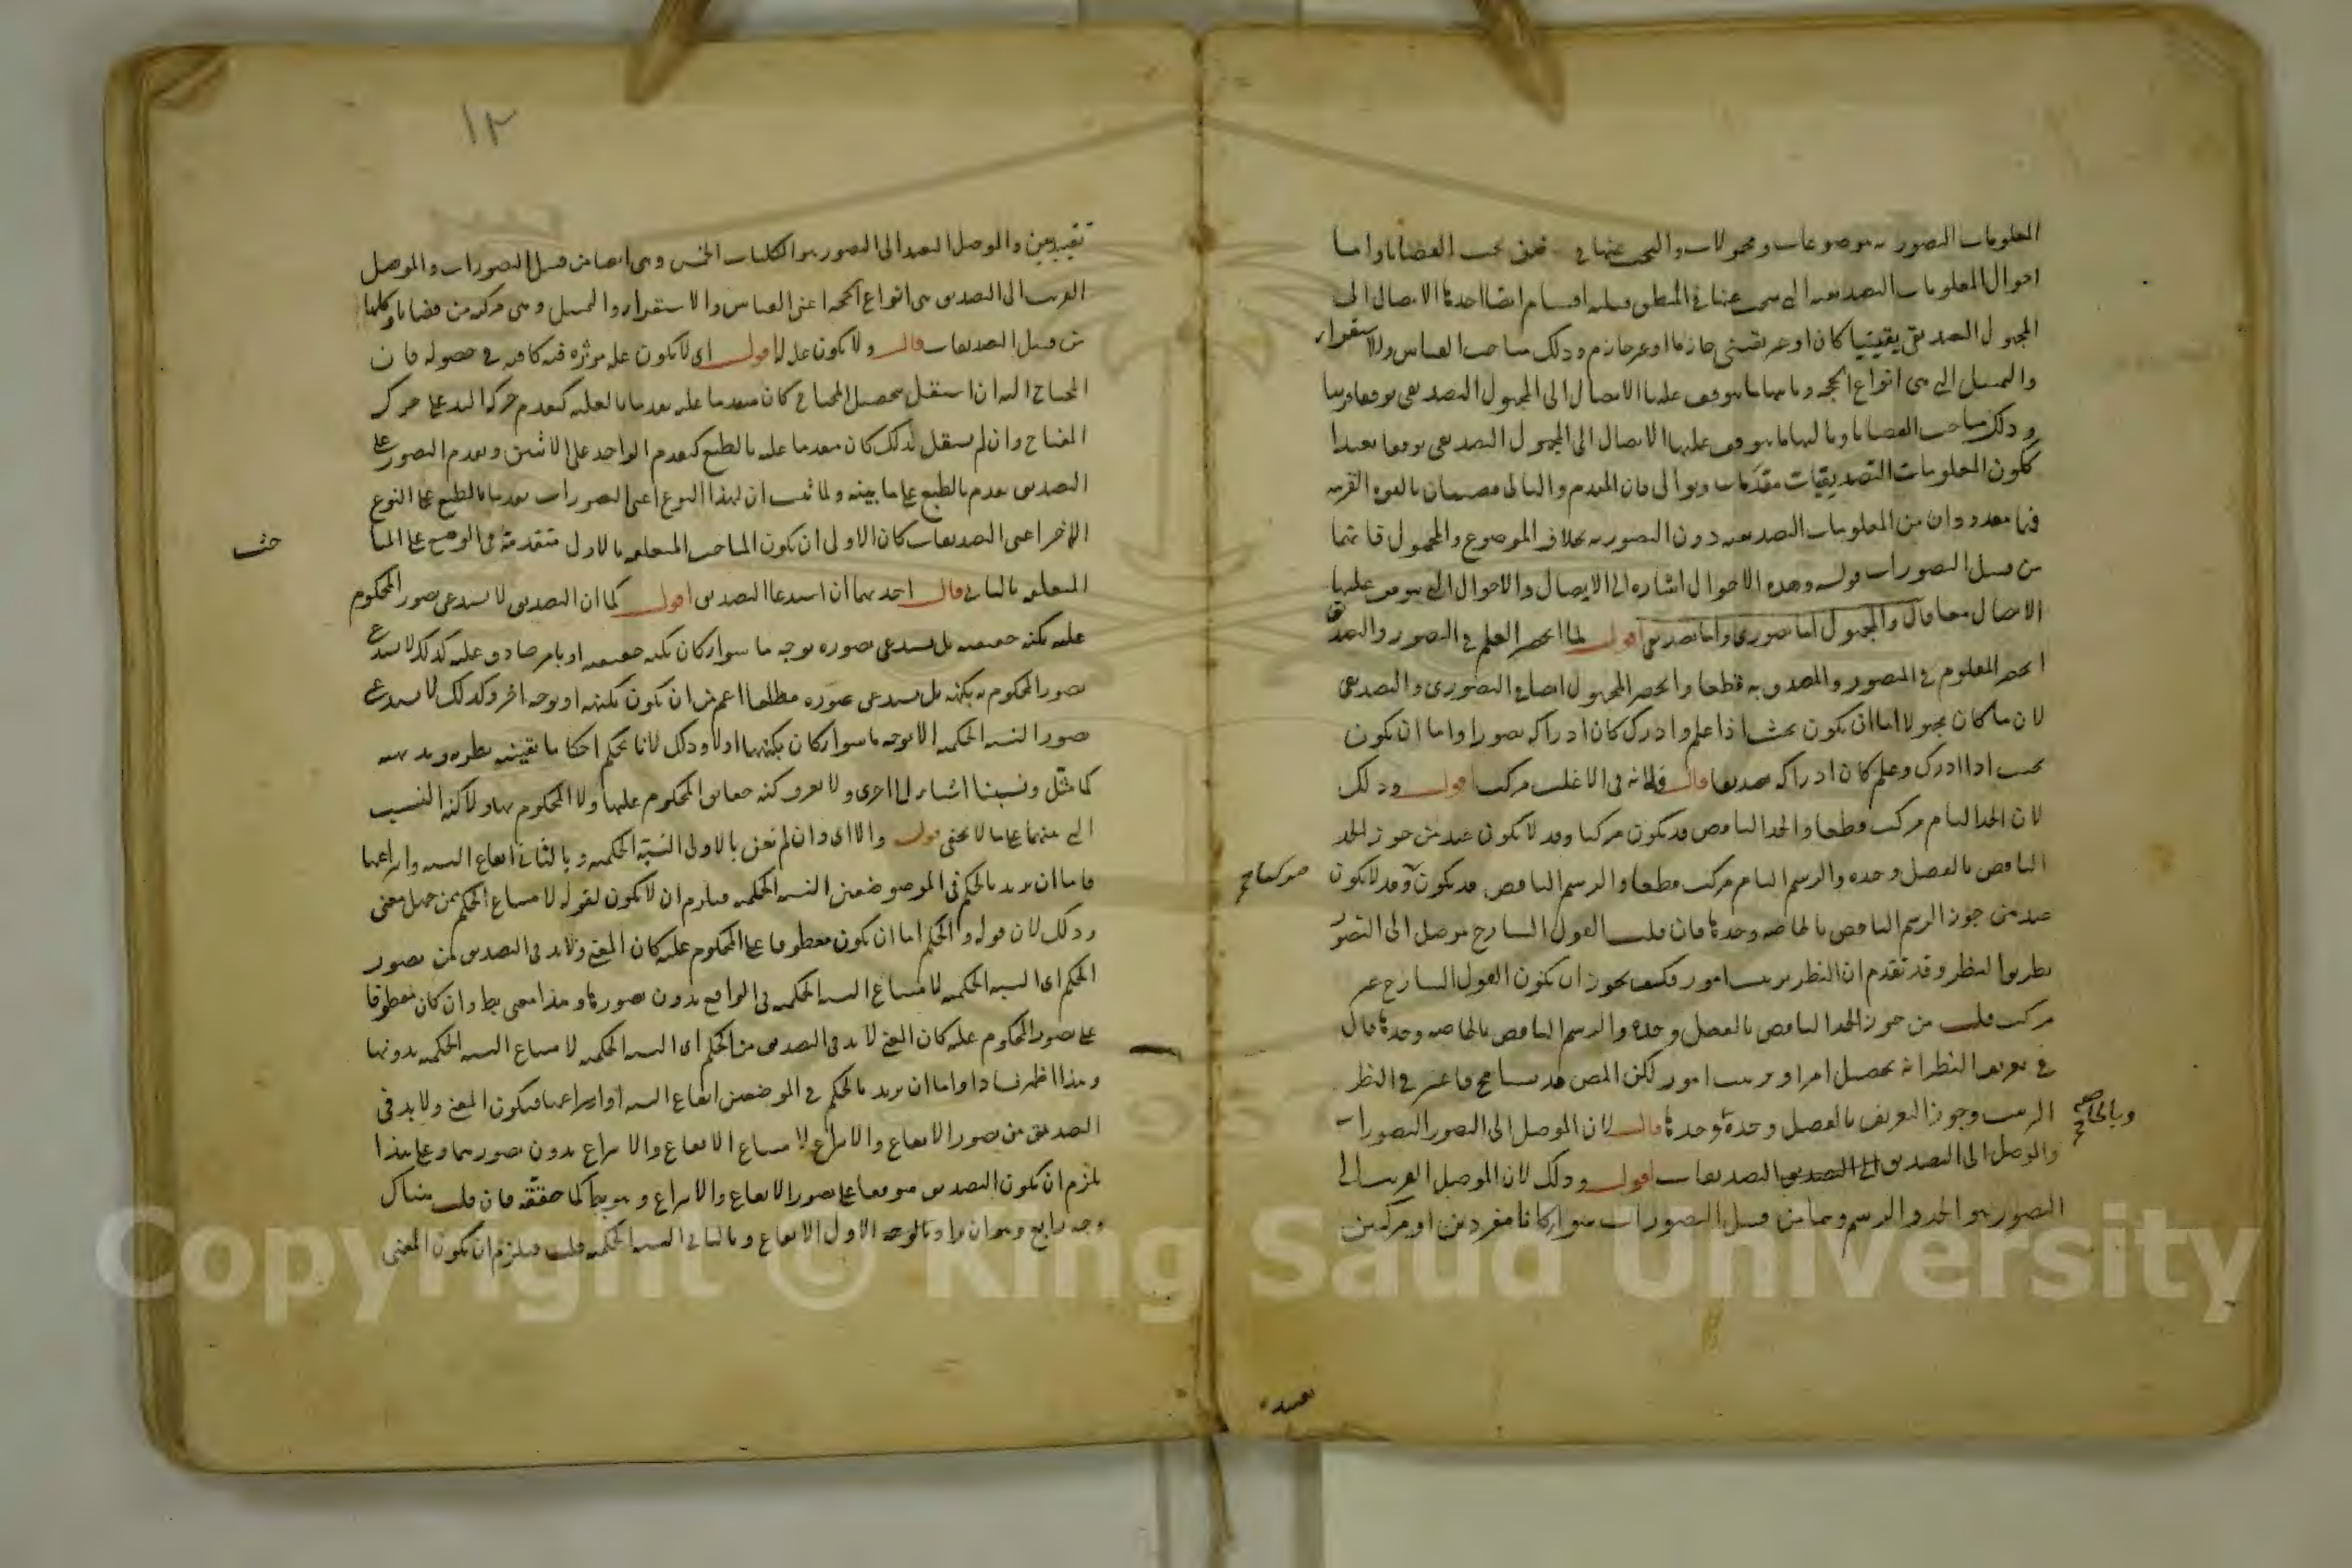 المعلومات التصورية موضوعات ومحمولات والبحث عنها في ضمن بحث القضايا واما
احوال المعلومات التصديقية التي يبحث عنها في المنطق فثلثة اقسام ايضا احدها الايصال الى
المجهول التصديقي يقينيا كان او غير يقيني جازما او غير جازم وذلك مباحث القياس والاستقراء
والتمثيل التي هي انواع الحجة وثانيها ما يتوقف عليه الايصال الى المجهول التصديقي توقفا قريبا
وذلك مباحث القضايا وثالثها ما يتوقف عليها الايصال الى المجهول التصديقي توقفا بعيدا
ككون المعلومات التصديقيات مقدمات وتوالى فان المقدم والتالى قضيتان بالقوة القريبة
فهما معدودان من المعلومات التصديقية دون التصورية بخلاف الموضوع والمحمول فانهما
من قبيل التصورات قوله وهذه الاحوال اشارة الى الايصال والاحوال التي يتوقف عليها
الايصال معا قال والمجهول اما تصورى واما تصديقى اقول لما انحصر العلم في التصور والتصديق
انحصر المعلوم في المتصور والمصدق به قطعا وانحصر المجهول ايضا في التصورى والتصديقى
لان ما كان مجهولا اما ان يكون بحيث اذا علم وادرك كان ادراكه تصورا واما ان يكون
بحيث اذا ادرك وعلم كان ادراكه تصديقا قال فلانه في الاغلب مركب اقول وذلك
لان الحد التام مركب قطعا والحد الناقص قد يكون مركبا وقد لا يكون عند من جوز الحد
الناقص بالفصل وحده والرسم التام مركب قطعا والرسم الناقص قد يكون وقد لا يكون
عند من جوز الرسم الناقص بالخاصة وحدها فان قلت القول الشارح موصل الى التصور
بطريق النظر وقد تقدم ان النظر ترتيب امور فكيف يجوز ان يكون القول الشارح غير
مركب قلت من جوز الحد الناقص بالفصل وحده والرسم الناقص بالخاصة وحدها قال
في تعريف النظر انه تحصيل امر او ترتيب امور لكن المص قد تسامح فاعتبر في النظر
الترتيب وجوز التعريف بالفصل وحده وحدها قال لان الموصل الى التصور التصورات
وبالخاصة
والموصل الى التصديق التصديقات اقول وذلك لان الموصل القريب الى
التصور هو الحد والرسم وهما من قبيل التصورات سواء كانا مفردين او مركبين
١٢
تقييديين والموصل البعيد الى التصور هو الكليات الخمس وهى ايضا من قبيل التصورات والموصل
القريب الى التصديق هى انواع الحجة اعنى القياس والاستقراء والتمثيل وهى مركبة من قضايا وكلها
من قبيل التصديقات قال ولا يكون علة له اقول اى لا يكون علة موثرة فيه كافية في حصوله فان
المحتاج اليه ان استقل بتحصيل المحتاج كان متقدما عليه تقدما بالعلية كتقدم حركة اليد على حركة
المفتاح وان لم يستقل بذلك كان متقدما عليه بالطبع كتقدم الواحد على الاثنين وتقدم التصور على
التصديق تقدم بالطبع على ما بينه ولما ثبت ان لهذا النوع اعنى التصورات تقدما بالطبع على النوع
الاخر اعنى التصديقات كان الاولى ان يكون المباحث المتعلقة بالاول متقدمة في الوضع على المبا
حث
المتعلقة بالثانى قال احديهما ان استدعاء التصديق اقول كما ان التصديق لا يستدعى تصور المحكوم
عليه بكنه حقيقته بل يستدعى تصوره بوجه ما سواء كان بكنه حقيقته او بامر صادق عليه كذلك لا يستدعى
تصور المحكوم به بكنهه بل يستدعى تصوره مطلقا اعم من ان يكون بكنهه او بوجه اخر وكذلك لا يستدعى
تصور النسبة الحكمية الا بوجه ما سواء كان بكنهها اولا وذلك لانا نحكم احكاما يقينية نظرية وبديهية
كما مثل ونسبنا اشياء الى اخرى ولا نعرف كنه حقايق المحكوم عليها ولا المحكوم بها ولا كنه النسب
التي بينهما على ما لا يخفى قوله والا اى وان لم نعن بالاولى النسبة الحكمية وبالثانى ايقاع النسبة وانتزاعها
فاما ان يريد بالحكم في الموضوضعين النسبة الحكمية فيلزم ان لا يكون لقوله لامتناع الحكم ممن جهل معنى
وذلك لان قوله والحكم اما ان يكون معطوفا على المحكوم عليه كان المعنى ولابد في التصديق من تصور
الحكم اى النسبة الحكمية لامتناع النسبة الحكمية في الواقع بدون تصورها وهذا معنى بط وان كان معطوفا
على تصور المحكوم عليه كان المعنى لا بد في التصديق من الحكم اى النسبة الحكمية لامتناع النسبة الحكمية بدونها
وهذا اظهر فسادا واما ان يريد بالحكم في الموضعين ايقاع النسبة او انتزاعها فيكون المعنى ولا بد في
التصديق من تصور الايقاع والانتزاع لامتناع الايقاع والانتزاع بدون تصورهما وعلى هذا
يلزم ان يكون التصديق موقوفا على تصور الايقاع والانتزاع وهو بط كما حققه فان قلت هناك
وجه رابع وهو ان يراد بالوجه الاول الايقاع وبالثانى النسبة الحكمية قلت فيلزم ان يكون المعنى
Copyright © King Saud University